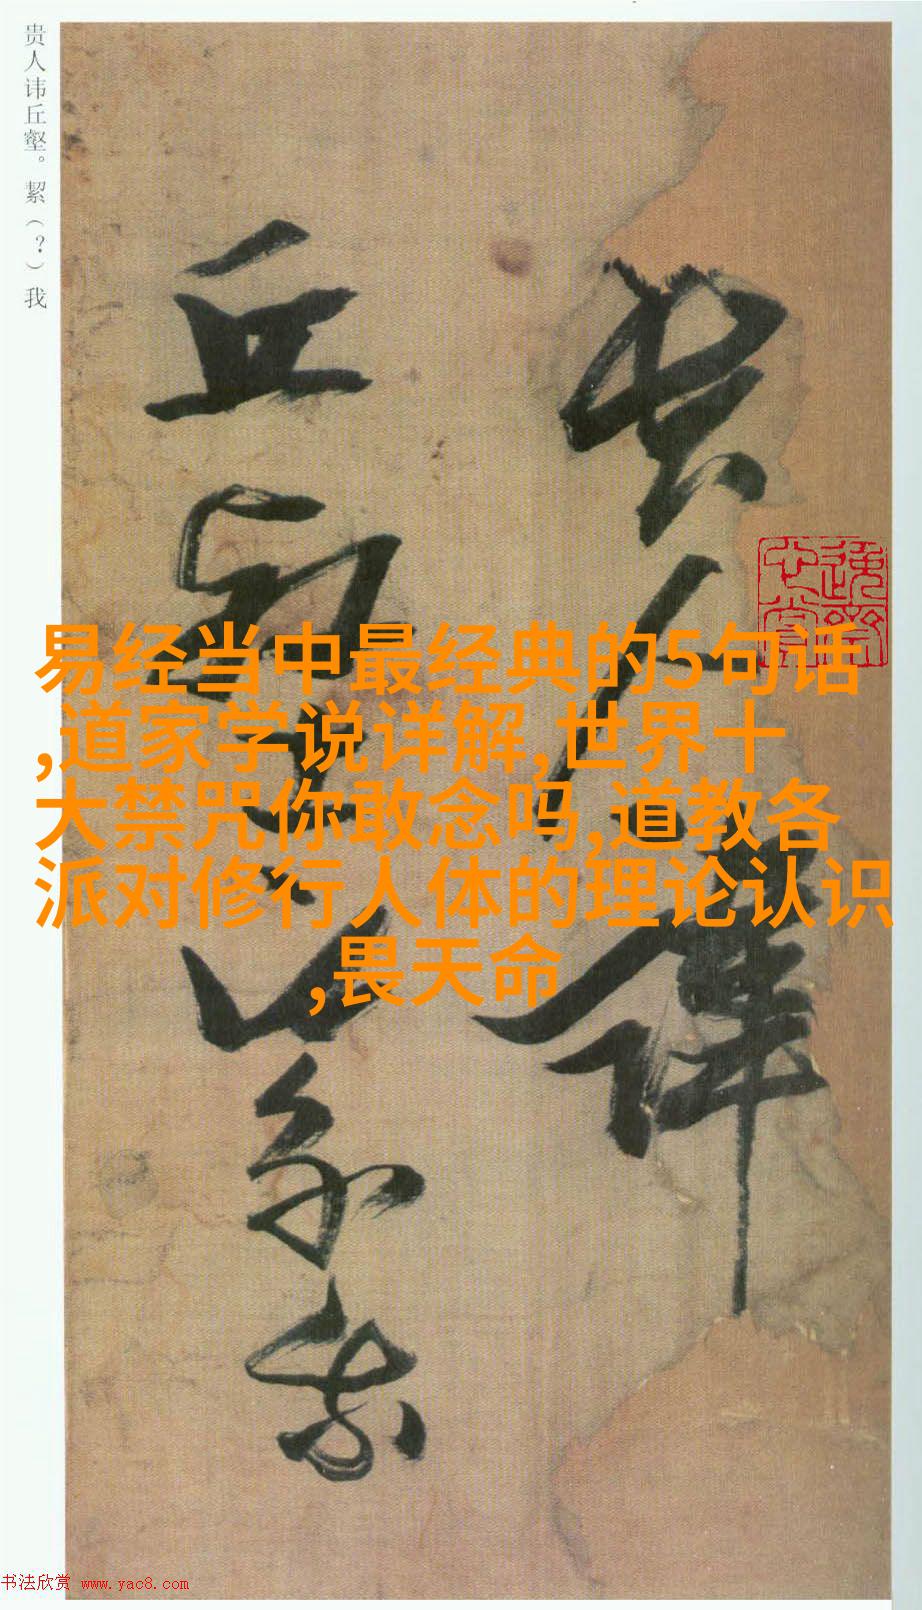 贵人讳丘壑。絜（？）我
贵人讳
丘壑。絜我
易经当中最经典的5句话
,道家学说详解,世界十
大禁咒你敢念吗,道教各
派对修行人体的理论认识
,畏天命
书法欣赏 www.yac8.com